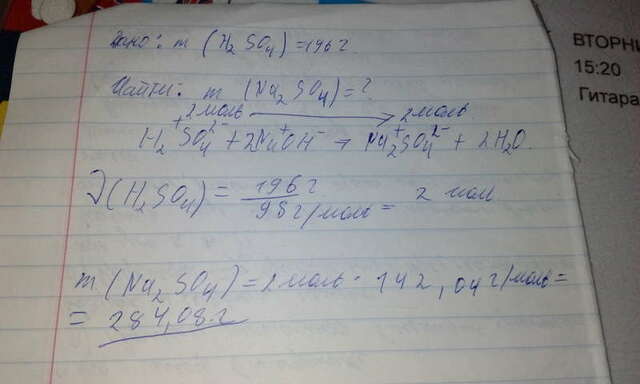 Дано: m (H₂SO₄) = 196 г.
Найти: m (Na₂SO₄) = ?
2 моль → 2 моль
H₂⁺SO₄²⁻ + 2Na⁺OH⁻ → Na₂⁺SO₄²⁻ + 2H₂O.
ν(H₂SO₄) = 196 г / 98 г/моль = 2 мол
m (Na₂SO₄) = 2 моль · 142,04 г/моль =
= 284,08 г
ВТОРНИ
15:20
Гитара